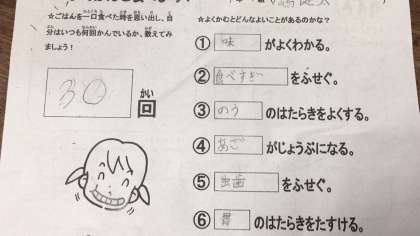 ☆ごはんを一口食べた時を思い出し、自
分はいつも何回かんでいるか、数えてみ
ましょう！
30
かい
回
☆よくかむとどんなよいことがあるのかな？
① 味 がよくわかる。
② 食べすぎ をふせぐ。
③ のう のはたらきをよくする。
④ あご がじょうぶになる。
⑤ 虫歯 をふせぐ。
⑥ 胃 のはたらきをたすける。